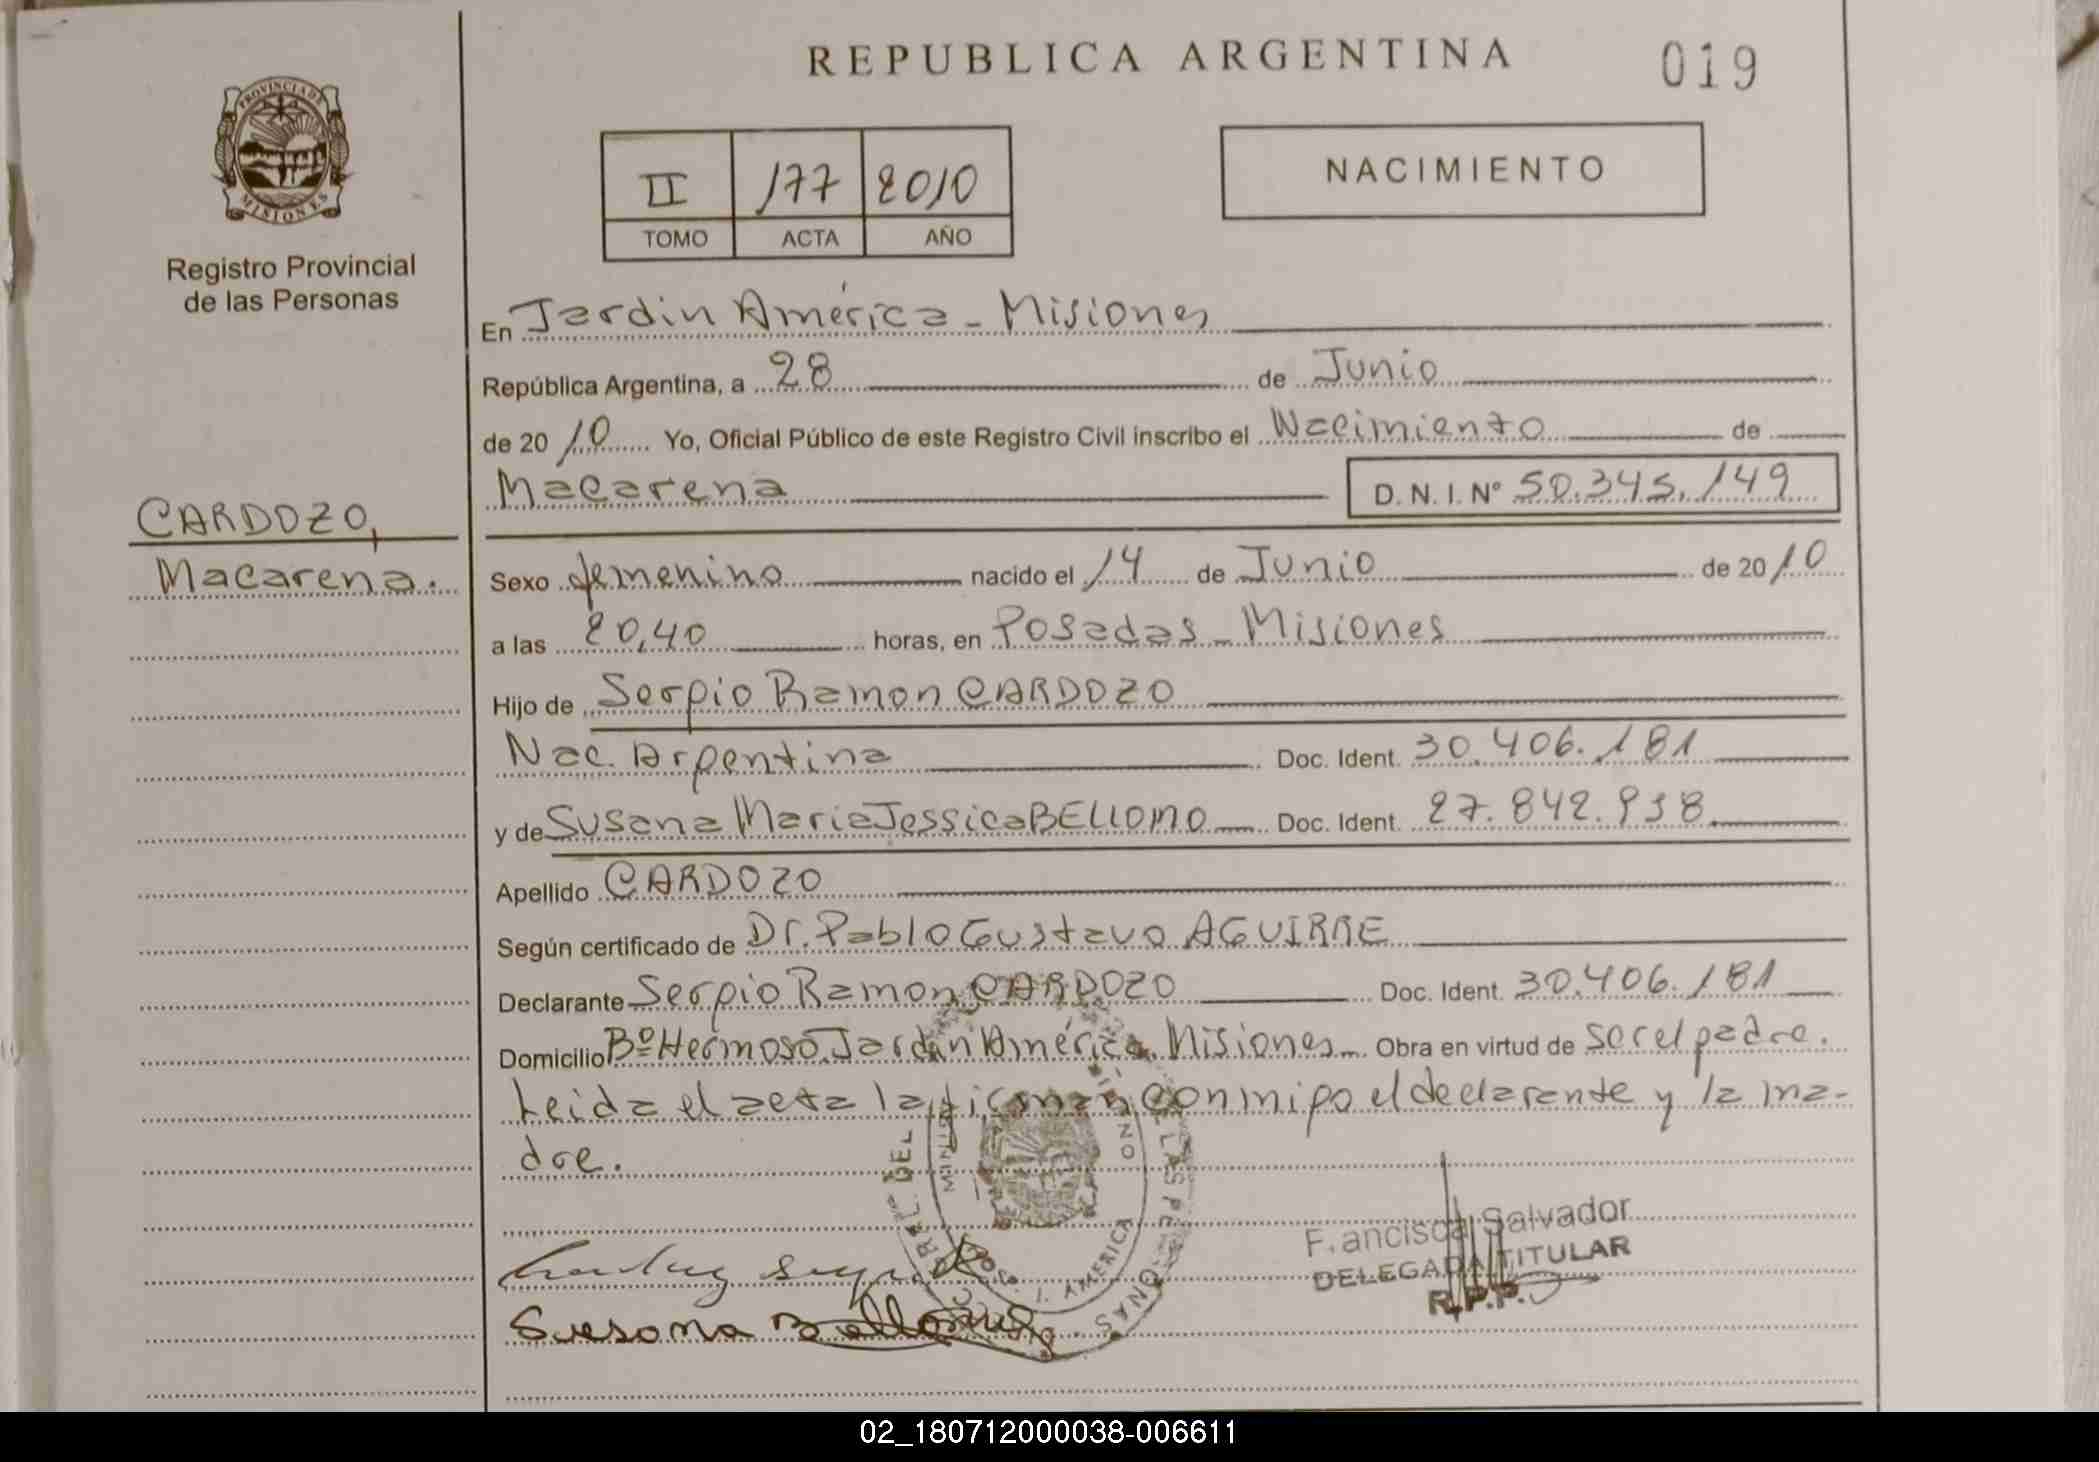 REPUBLICA ARGENTINA
019
PROVINCIA DE
MISIONES
Registro Provincial
de las Personas
II 177 2010
TOMO ACTA AÑO
NACIMIENTO
En Jardin América - Misiones
República Argentina, a 28 de Junio
de 2010 Yo, Oficial Público de este Registro Civil inscribo el Nacimiento de
Macarena D.N.I. Nº 50.345.149
CARDOZO,
Macarena.
Sexo femenino nacido el 14 de Junio de 2010
a las 20,40 horas, en Posadas - Misiones
Hijo de Sergio Ramon CARDOZO
Nac. Argentina Doc. Ident. 30.406.181
y de Susana Maria Jessica BELLOMO Doc. Ident. 27.842.938
Apellido CARDOZO
Según certificado de Dr. Pablo Gustavo AGUIRRE
Declarante Sergio Ramon CARDOZO Doc. Ident. 30.406.181
Domicilio Bº Hermoso. Jardin América. Misiones Obra en virtud de ser el padre.
Leida el acta la firman conmigo el declarante y la ma-
dre.
Francisca Salvador
DELEGADA TITULAR
R.P.P.
Susana Bellomo
02_180712000038-006611